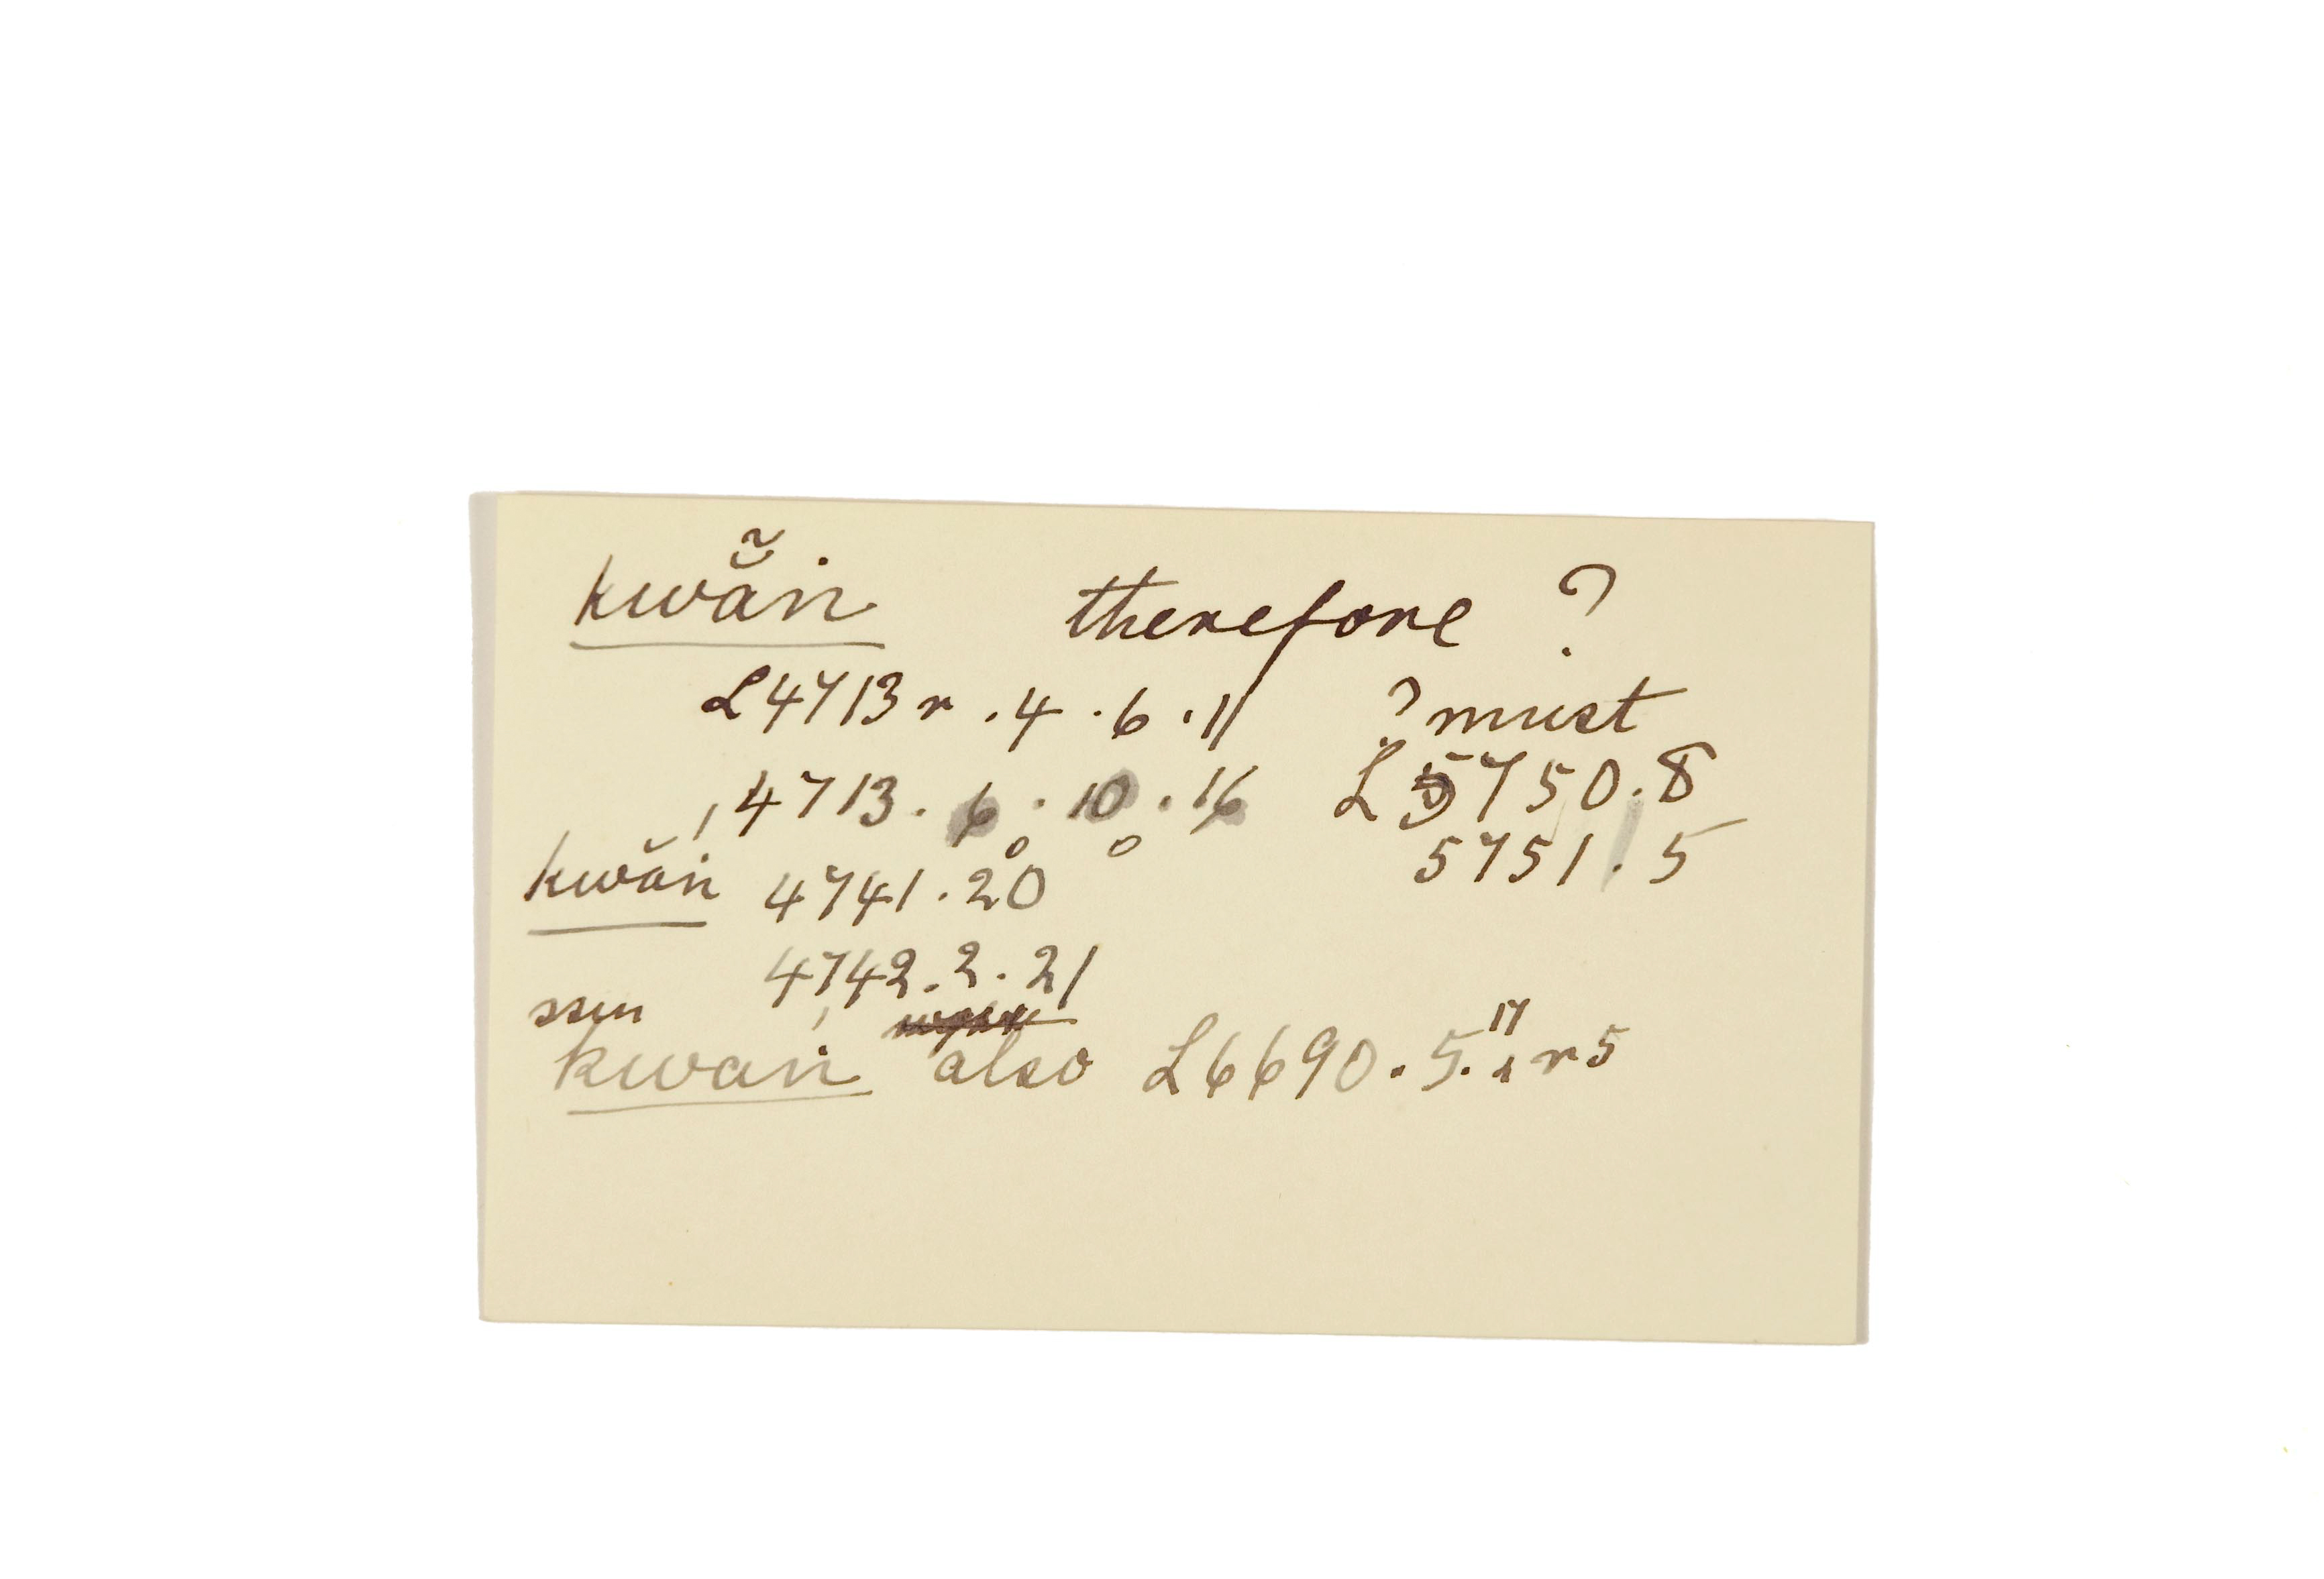 kwẵṅ therefore ?
L4713r.4.6.11 ?must
4713.6.10.16 L5750.8
kwắṅ 4741.20 5751.5
4742.2.21
ssin
kwaṅ also L6690.5.17 r5